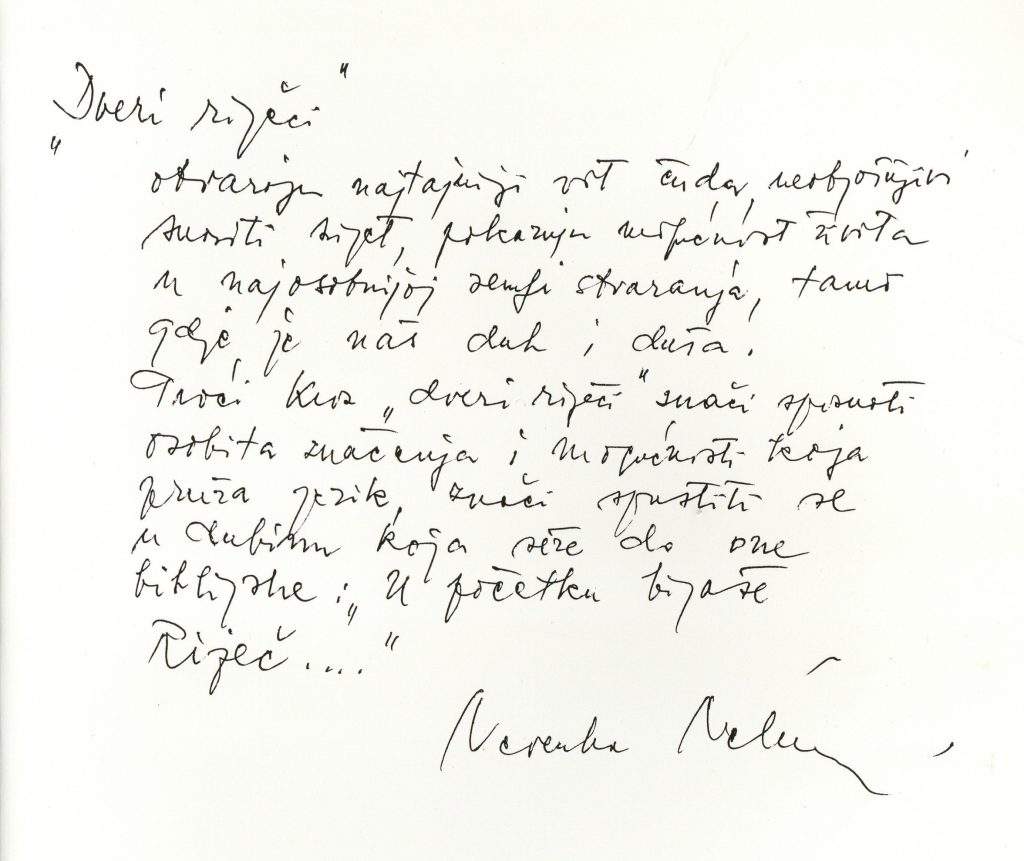 „Dveri riječi"
otvaraju najtajniji vrt čuda, neobjašnjivi
snoviti svijet, pokazuju mogućnost života
u najosobnijoj zemlji stvaranja, tamo
gdje je naš duh i duša.
Proći kroz „dveri riječi" znači spoznati
osobita značenja i mogućnosti koja
pruža jezik, znači spustiti se
u dubinu koja seže do one
biblijske: „U početku bijaše
Riječ...."
Nevenka